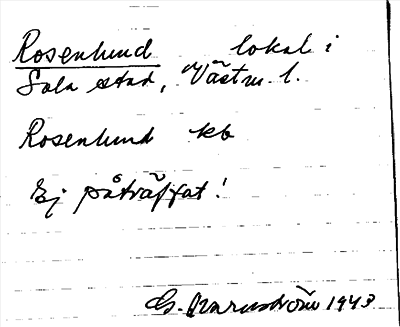 Rosenlund lokal i
Sala stad, Västm. l.
Rosenlund kb
Ej påträffat!
G. 1943